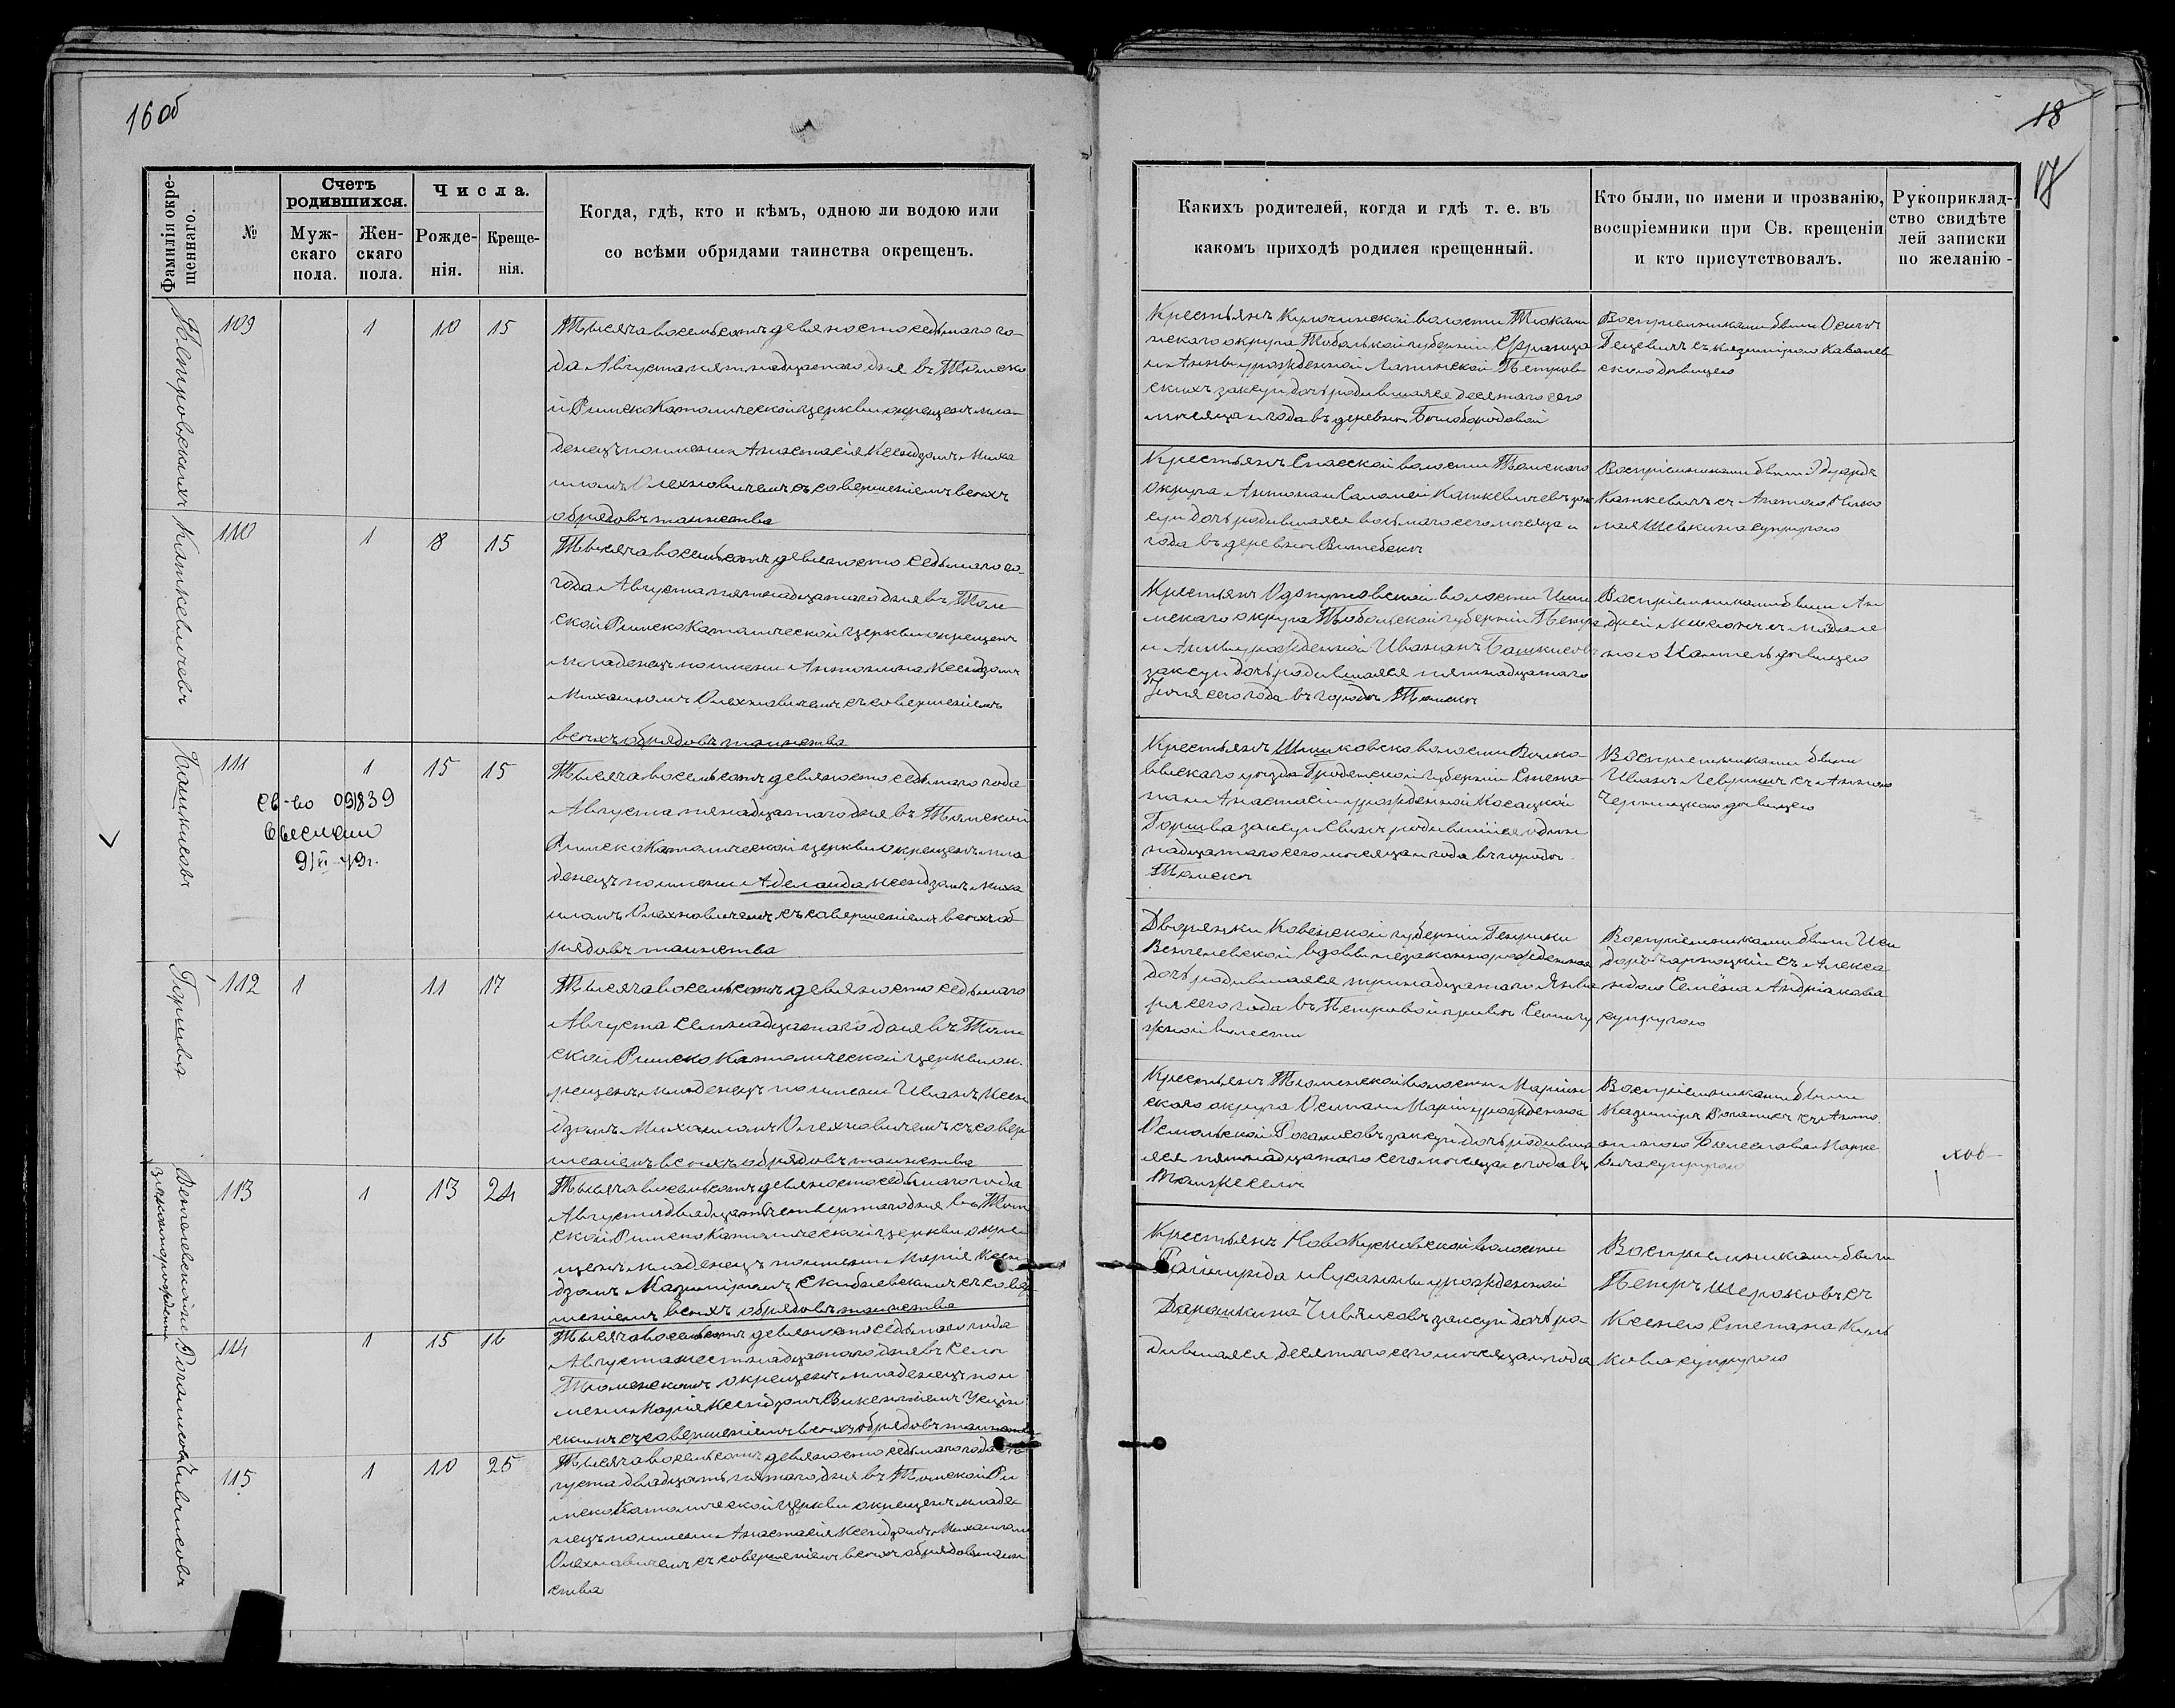 16 об
Фамилія окре-
щеннаго.
№
Счетъ
родившихся.
Муж-
скаго
пола.
Жен-
скаго
пола.
Числа.
Рожде-
нія.
Креще-
нія.
Когда, гдѣ, кто и кѣмъ, одною ли водою или
со всѣми обрядами таинства окрещенъ.
Петровскихъ
109
1
10
15
Тысяча восемьсотъ девяносто седьмаго го-
да Августа пятнадцатаго дня въ Томско
й Римско Католической церкви окрещенъ мла-
денецъ по имени Анастасія Ксендзомъ Миха
иломъ Олехновичемъ съ совершеніемъ всѣхъ
обрядовъ таинства
Каткевичевъ
110
1
8
15
Тысяча восемьсотъ девяносто седьмаго го-
года Августа пятнадцатаго дня въ Том
ской Римско Католической церкви окрещенъ
младенецъ по имени Антонина Ксендзомъ
Михаиломъ Олехновичемъ съ совершеніемъ
всѣхъ обрядовъ таинства
Башкисовъ
111
1
15
15
св-во 091839
выслано
9/VI-49г.
Тысяча восемьсотъ девяносто седьмаго года
Августа пятнадцатаго дня въ Томской
Римско Католической церкви окрещенъ мла
денецъ по имени Аделаида Ксендзомъ Миха
иломъ Олехновичемъ съ совершеніемъ всѣхъ об
рядовъ таинства
112
1
11
17
Тысяча восемьсотъ девяносто седьмаго
Августа семнадцатаго дня въ Том
ской Римско Католической церкви ок
рещенъ младенецъ по имени Иванъ Ксен
дзомъ Михаиломъ Олехновичемъ съ совер
шеніемъ всѣхъ обрядовъ таинства
незаконнорожденная
113
1
13
24
Тысяча восемьсотъ девяносто седьмаго года
Августа двадцать четвертаго дня въ Том
ской Римско Католической церкви окре
щенъ младенецъ по имени Марія Ксен
дзомъ Казиміромъ съ совер
шеніемъ всѣхъ обрядовъ таинства
Роганисовъ
114
1
15
16
Тысяча восемьсотъ девяносто седьмаго года
Августа шестнадцатаго дня въ селѣ
Тюменскомъ окрещенъ младенецъ по и
мени Марія Ксендзомъ Викентіемъ
скимъ съ совершеніемъ всѣхъ обрядовъ таинства
Чивчисовъ
115
1
10
25
Тысяча восемьсотъ девяносто седьмаго года Ав
густа двадцать пятаго дня въ Томской Ри
мско Католической церкви окрещенъ младе
нецъ по имени Анастасія Ксендзомъ Михаиломъ
Олехновичемъ съ совершеніемъ всѣхъ обрядовъ таин
ства
18
17
Какихъ родителей, когда и гдѣ т. е. въ
какомъ приходѣ родился крещенный.
Кто были, по имени и прозванію,
воспріемники при Св. крещеніи
и кто присутствовалъ.
Рукоприклад-
ство свидѣте
лей записки
по желанію -
Крестьянъ волости Тюкали
нскаго округа Тобольской губерніи Франца
и Анны урожденной Петров
скихъ закон дочь родившаяся десятаго сего
мѣсяца и года въ деревнѣ Бѣлобородовой
Воспріемниками были Осипъ
съ Казимірою Ковалев
скою дѣвицею
Крестьянъ Спасской волости Томскаго
округа Антона и Саломеи Каткевичевъ зак
суп дочь родившаяся восьмаго сего мѣсяца и
года въ деревнѣ Витебскѣ
Воспріемниками были Эдуардъ
Каткевичъ съ Антою Нико
лая супругою
Крестьянъ волости Иши
мскаго округа Тобольской губерніи Петра
и Анны урожденной Иванонъ Башкисовъ
зак суп дочь родившаяся пятнадцатаго
Іюля сего года въ городѣ Томскѣ
Воспріемниками были Ан
дрей съ Магдале
ною дѣвицею
Крестьянъ волости Волко
выскаго уѣзда Гродненской губерніи Степа
на и Анастасіи урожденной Косацкой
зак суп сынъ родившійся один
надцатаго сего мѣсяца и года въ городѣ
Томскѣ
Воспріемниками были
Иванъ съ Анною
дѣвицею
Дворянки Ковенской губерніи Генрики
вдовы незаконнорожденная
дочь родившаяся тринадцатаго Янва
ря сего года въ Семилу
жной волости
Воспріемниками были Иси
доръ съ Алекса
ндрою Семёна Андріакова
супругою
Крестьянъ Тюменской волости Маріин
скаго округа Осипа и Маріи урожденной
Роганисовъ зак суп дочь родивша
яся пятнадцатаго сего мѣсяца и года въ
томъ же селѣ
Воспріемниками были
Казиміръ съ Анто
ниною Болеслава
супругою
Крестьянъ Ново Кусковской волости
и Сусанны урожденной
Чивчисовъ зак суп дочь ро
дившаяся десятаго сего мѣсяца и года
Воспріемниками были
Петръ съ
Ксенею Степана
супругою